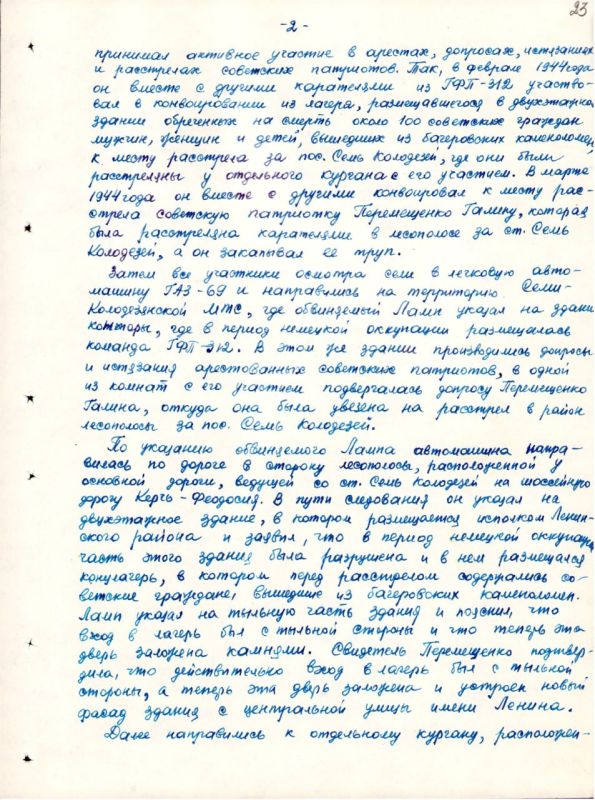 23
-2-
принимал активное участие в арестах, допросах, истязаниях
и расстрелах советских патриотов. Так, в феврале 1944 года
он вместе с другими карателями из ГФП-312 участво-
вал в конвоировании из лагеря, размещавшегося в двухэтажном
здании обреченных на смерть около 100 советских граждан
мужчин, женщин и детей, вышедших из багеровских каменоломен,
к месту расстрела за пос. Семь Колодезей, где они были
расстреляны у отдельного кургана с его участием. В марте
1944 года он вместе с другими конвоировал к месту рас-
стрела советскую патриотку Перемещенко Галину, которая
была расстреляна карателями в лесополосе за ст. Семь
Колодезей, а он закапывал ее труп.
Затем все участники осмотра сели в легковую авто-
машину ГАЗ-69 и направились на территорию Семи-
Колодезянской МТС, где обвиняемый Ламп указал на здание
конторы, где в период немецкой оккупации размещалась
команда ГФП-312. В этом же здании производились допросы
и истязания арестованных советских патриотов, в одной
из комнат с его участием подвергалась допросу Перемещенко
Галина, откуда она была увезена на расстрел в район
лесополосы за пос. Семь Колодезей.
По указанию обвиняемого Лампа автомашина напра-
вилась по дороге в сторону лесополосы, расположенной у
основной дороги, ведущей со ст. Семь Колодезей на шоссейную
дорогу Керчь-Феодосия. В пути следования он указал на
двухэтажное здание, в котором размещается исполком Ленин-
ского района и заявил, что в период немецкой оккупации
часть этого здания была разрушена и в нем размещался
концлагерь, в котором перед расстрелом содержались со-
ветские граждане, вышедшие из багеровских каменоломен.
Ламп указал на тыльную часть здания и пояснил, что
вход в лагерь был с тыльной стороны и что теперь эта
дверь заложена камнями. Свидетель Перемещенко подтвер-
дила, что действительно вход в лагерь был с тыльной
стороны, а теперь эта дверь заложена и устроен новый
фасад здания с центральной улицы имени Ленина.
Далее направились к отдельному кургану, расположен-